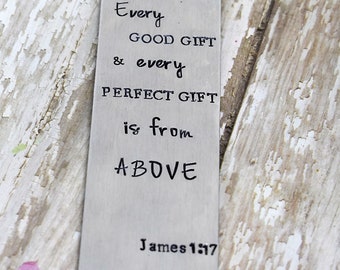 Every
GOOD GIFT
& every
PERFECT GIFT
is from
ABOVE
James 1:17